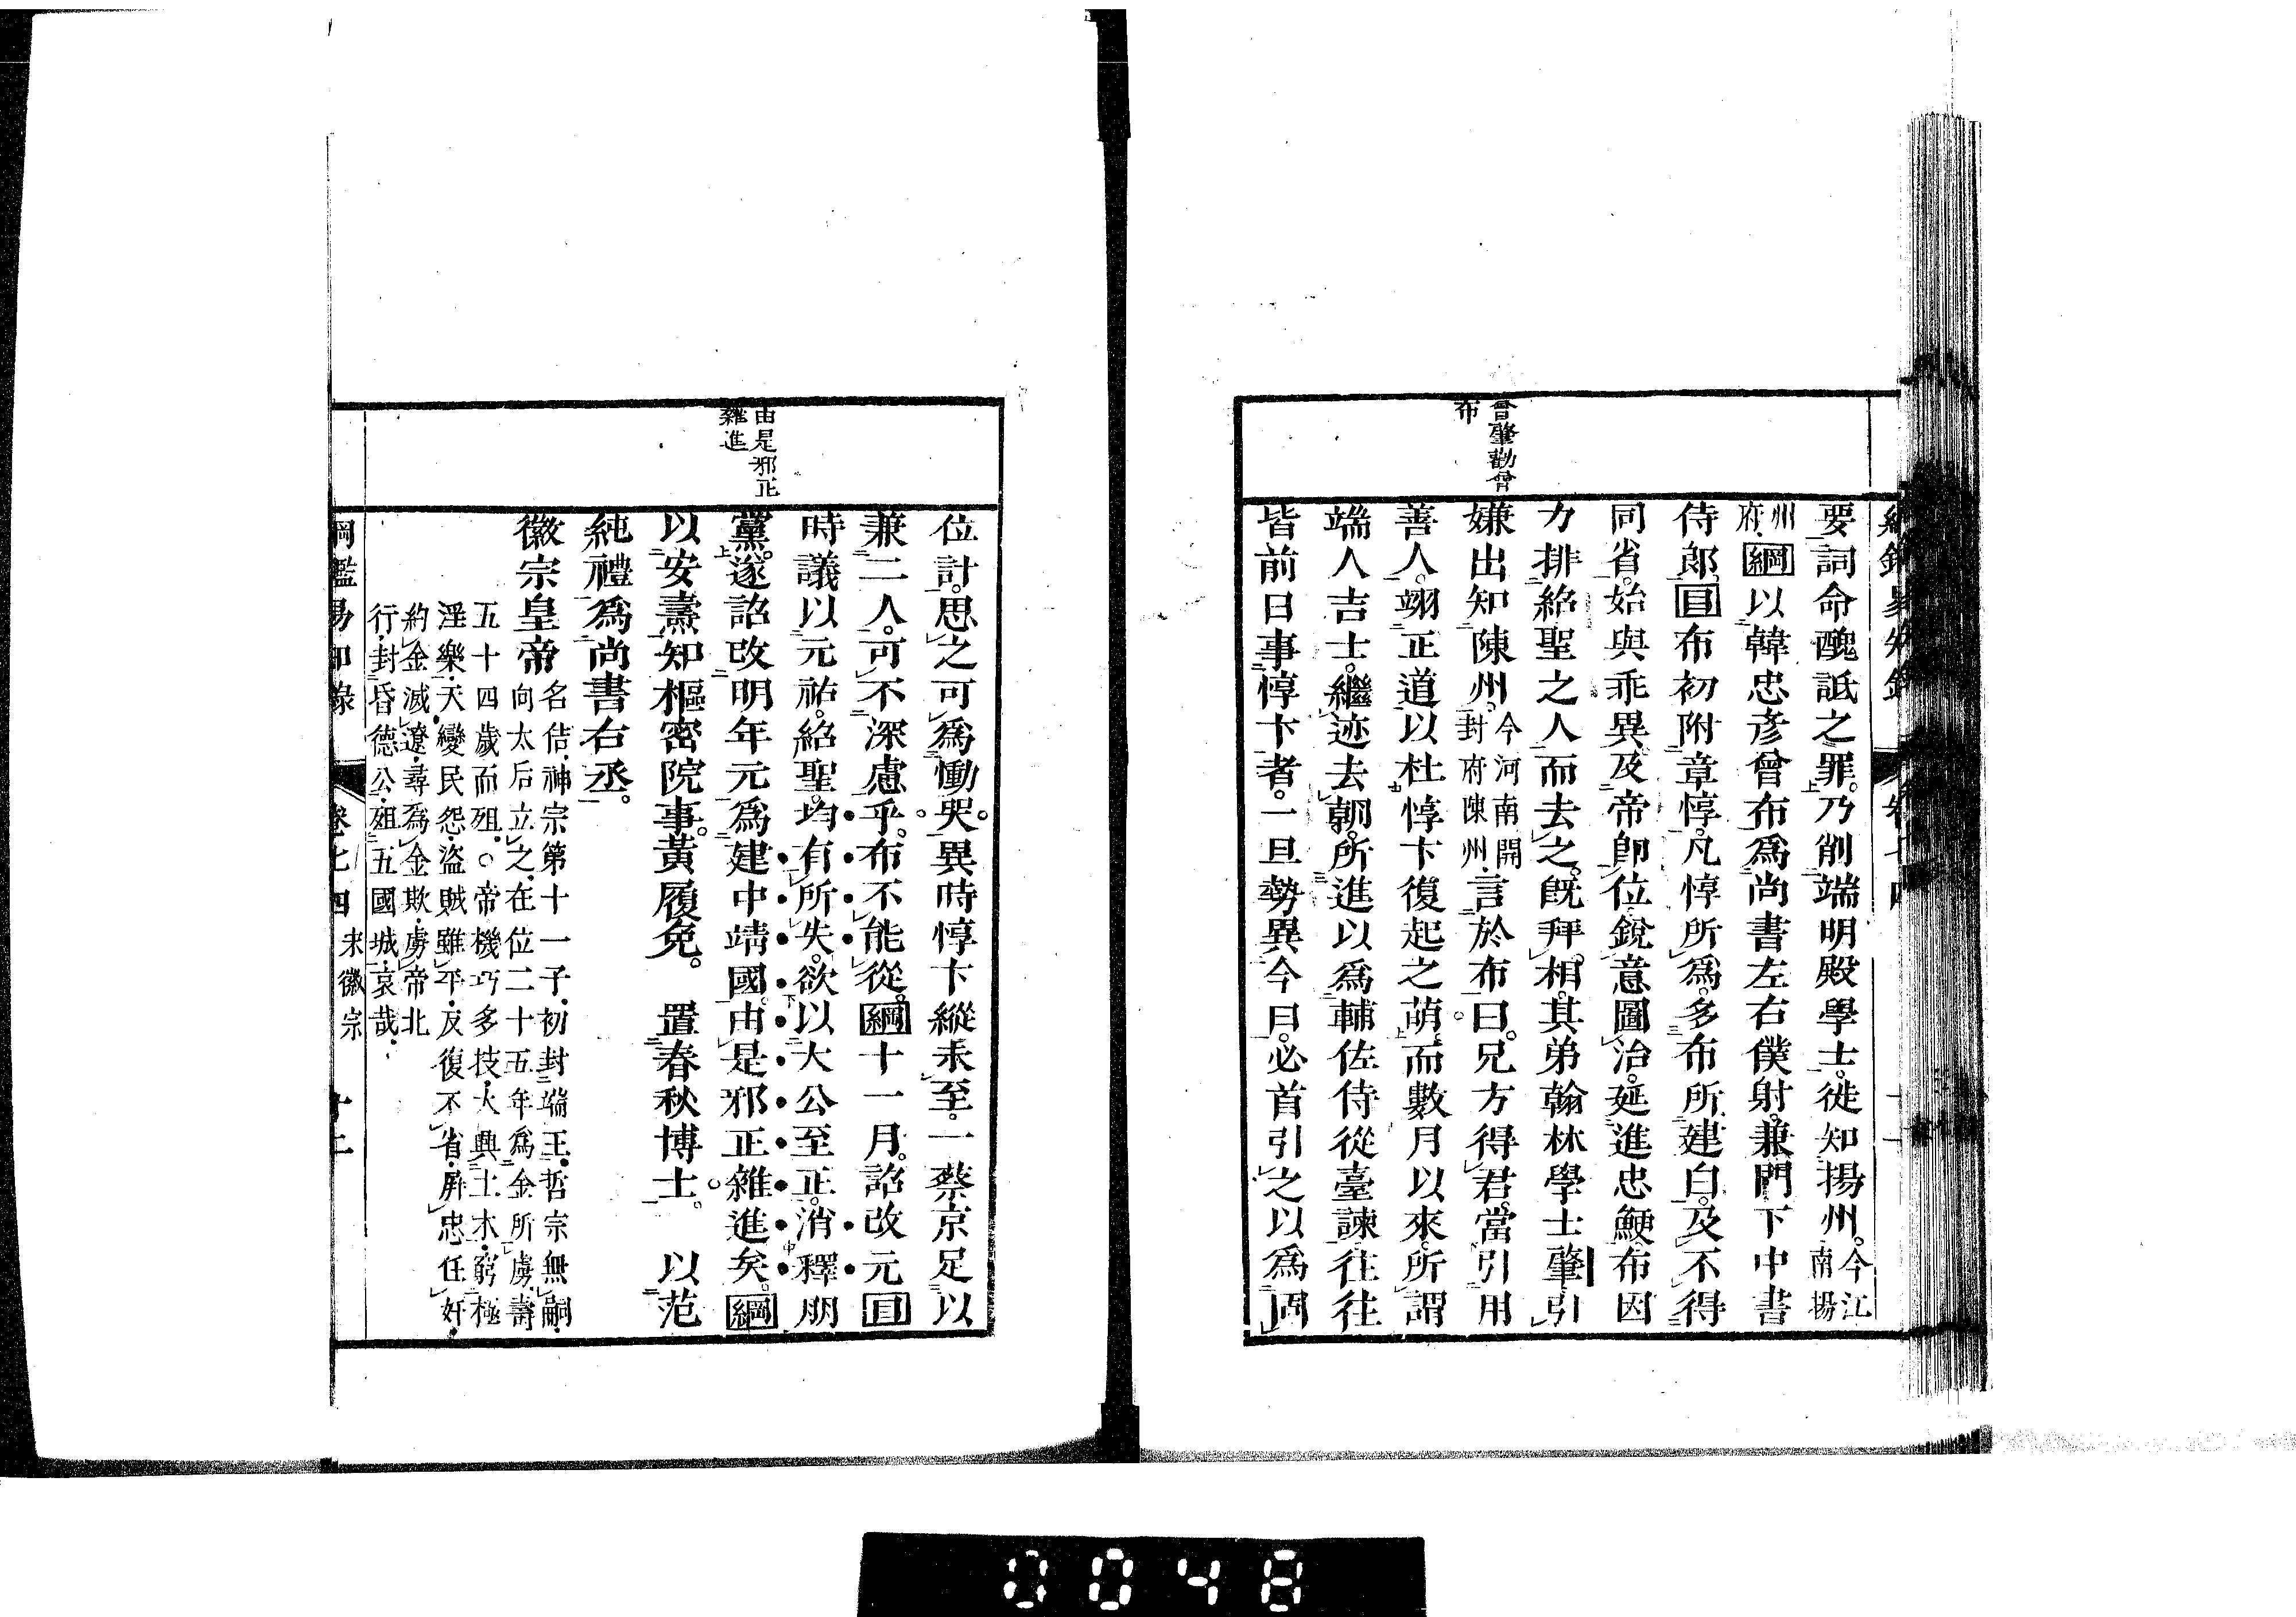 曾肇勸曾
布
要詞命醜詆之罪。乃削端明殿學士。徙知揚州。今江南揚
州府。綱以韓忠彥曾布爲尚書左右僕射。兼門下中書
侍郎。目布初附章惇。凡惇所爲。多布所建白。及不得
同省。始與乖異。及帝卽位。銳意圖治。延進忠鯁。布因
力排紹聖之人而去之。旣拜相。其弟翰林學士肇引
嫌出知陳州。今河南開封府陳州。言於布曰。兄方得君。當引用
善人。翊正道。以杜惇卞復起之萌。而數月以來。所謂
端人吉士。繼迹去朝。所進以爲輔佐侍從臺諫。往往
皆前日事惇卞者。一旦勢異今日。必首引之以爲固
由是邪正
雜進
位計。思之可爲慟哭。異時惇卞縱未至。一蔡京足以
兼二人。可不深慮乎。布不能從。綱十一月。詔改元目
時議以元祐。紹聖。均有所失。欲以大公至正。消釋朋
黨。遂詔改明年元爲建中靖國。由是邪正雜進矣。綱
以安燾知樞密院事。黃履免。 置春秋博士。 以范
純禮爲尚書右丞。
徽宗皇帝
名佶。神宗第十一子。初封端王。哲宗無嗣。
向太后立之。在位二十五年。爲金所虜。壽
五十四歲而殂。○帝機巧多技。大興土木。窮極
淫樂。天變民怨。盜賊雖平。反復不省。屏忠任奸。
約金滅遼。尋爲金欺。虜帝北
行。封昏德公。殂五國城。哀哉。
綱鑑易知錄 卷七四 宋徽宗